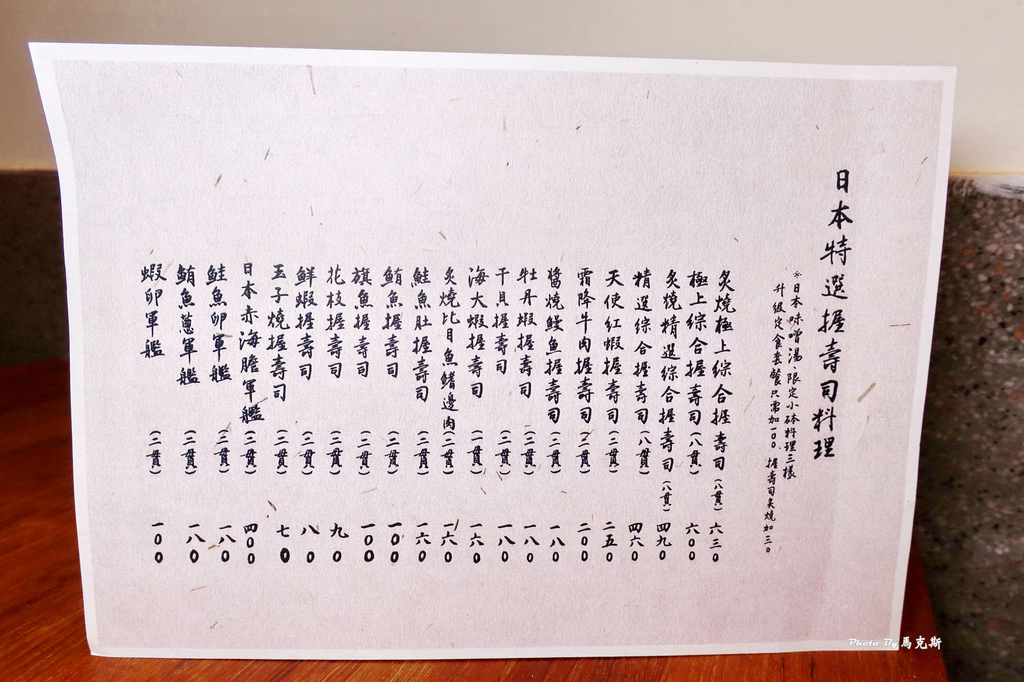 日本特選握壽司料理
※日本味噌湯、限定小缽料理三樣
升級定食套餐只需加一00 握壽司炙燒加三0
炙燒極上綜合握壽司(八貫) 六三0
極上綜合握壽司(八貫) 六00
炙燒精選綜合握壽司(八貫) 四九0
精選綜合握壽司(八貫) 四六0
天使紅蝦握壽司(二貫) 二五0
霜降牛肉握壽司(二貫) 二00
醬燒鰻魚握壽司(二貫) 一八0
牡丹蝦握壽司(二貫) 一八0
干貝握壽司(二貫) 一八0
海大蝦握壽司(二貫) 一六0
炙燒比目魚鰭邊肉(二貫) 一六0
鮭魚肚握壽司(二貫) 一六0
鮪魚握壽司(二貫) 一00
旗魚握壽司(二貫) 一00
花枝握壽司(二貫) 九0
鮮蝦握壽司(二貫) 八0
玉子燒握壽司(二貫) 七0
日本赤海膽軍艦(二貫) 四00
鮭魚卵軍艦(二貫) 一八0
鮪魚蔥軍艦(二貫) 一八0
蝦卵軍艦(二貫) 一00
Photo By 馬克斯